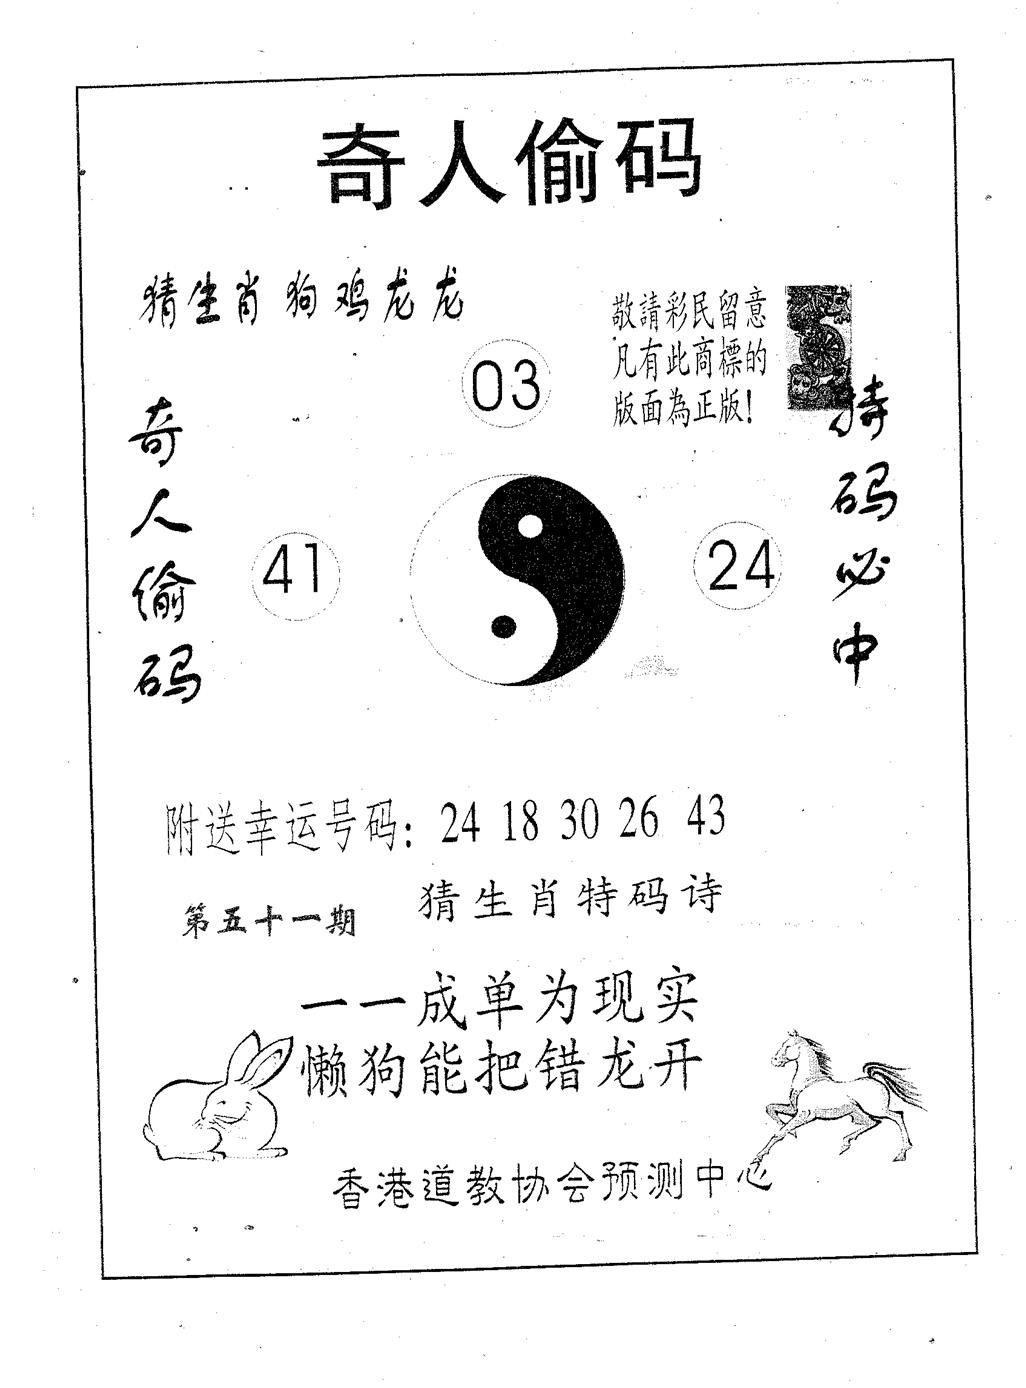 奇人偷码
猜生肖狗鸡龙龙
敬請彩民留意
凡有此商標的
版面為正版!
03
奇人偷码
特码必中
41
24
附送幸运号码: 24 18 30 26 43
猜生肖特码诗
第五十一期
一一成单为现实
懒狗能把错龙开
香港道教协会预测中心